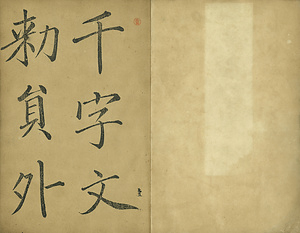 千字文
勅員外